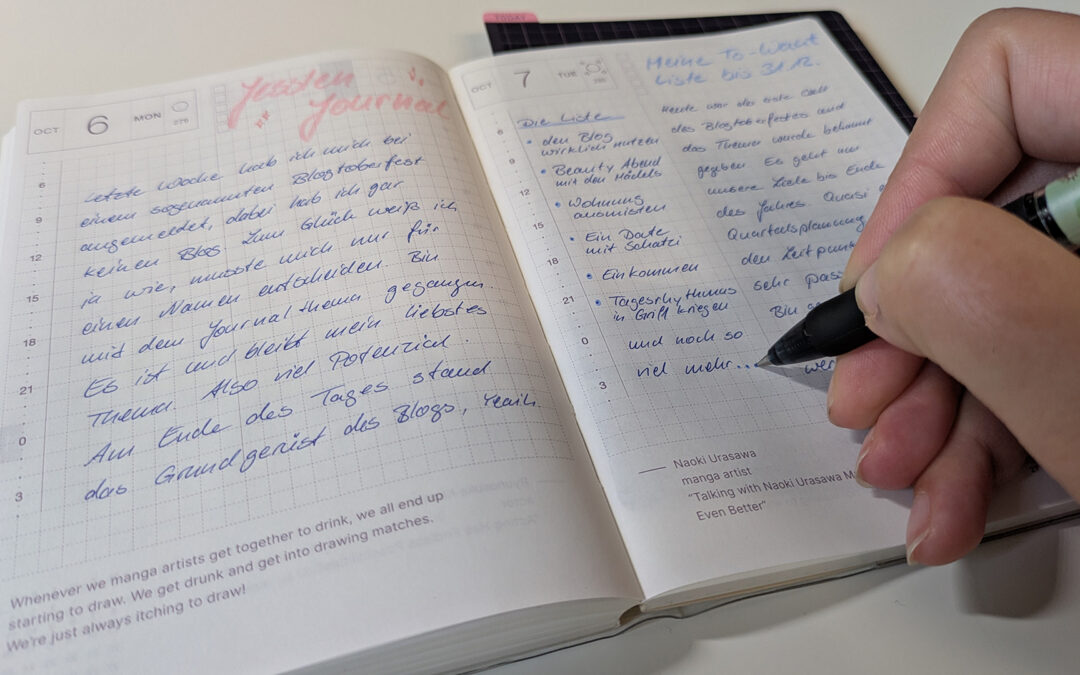 OCT 6 MON
279
Journal
6
9
12
15
18
21
0
3
Letzte Woche hab ich mich bei
einem sogenannten Blogtoberfest
angemeldet, dabei hab ich gar
keinen Blog. Zum Glück weiß ich
ja wie, musste mich nur für
einen Namen entscheiden. Bin
mit dem Journalthema gegangen.
Es ist und bleibt mein liebstes
Thema. Also viel Potenzial.
Am Ende des Tages stand
das Grundgerüst des Blogs,
Whenever we manga artists get together to drink, we all end up
starting to draw. We get drunk and get into drawing matches.
We're just always itching to draw!
TODAY
OCT 7 TUE
280
Meine To-Want
Liste bis 31.12.
6
9
12
15
18
21
0
3
Die Liste
• den Blog
wirklich nutzen
• Beauty Abend
mit den Mädels
• Wohnung
ausmisten
• Ein Date
mit Schatzi
• Einkommen
• Tagesrhythmus
in Griff kriegen
und noch so
viel mehr...
Heute war der erste Call
des Blogtoberfestes und
das Thema wurde bekannt
gegeben. Es geht um
unsere Ziele bis Ende
des Jahres. Quasi
Quartalsplanung
den Zeitpunkt
sehr
Bin
Naoki Urasawa
manga artist
"Talking with Naoki Urasawa
Even Better"